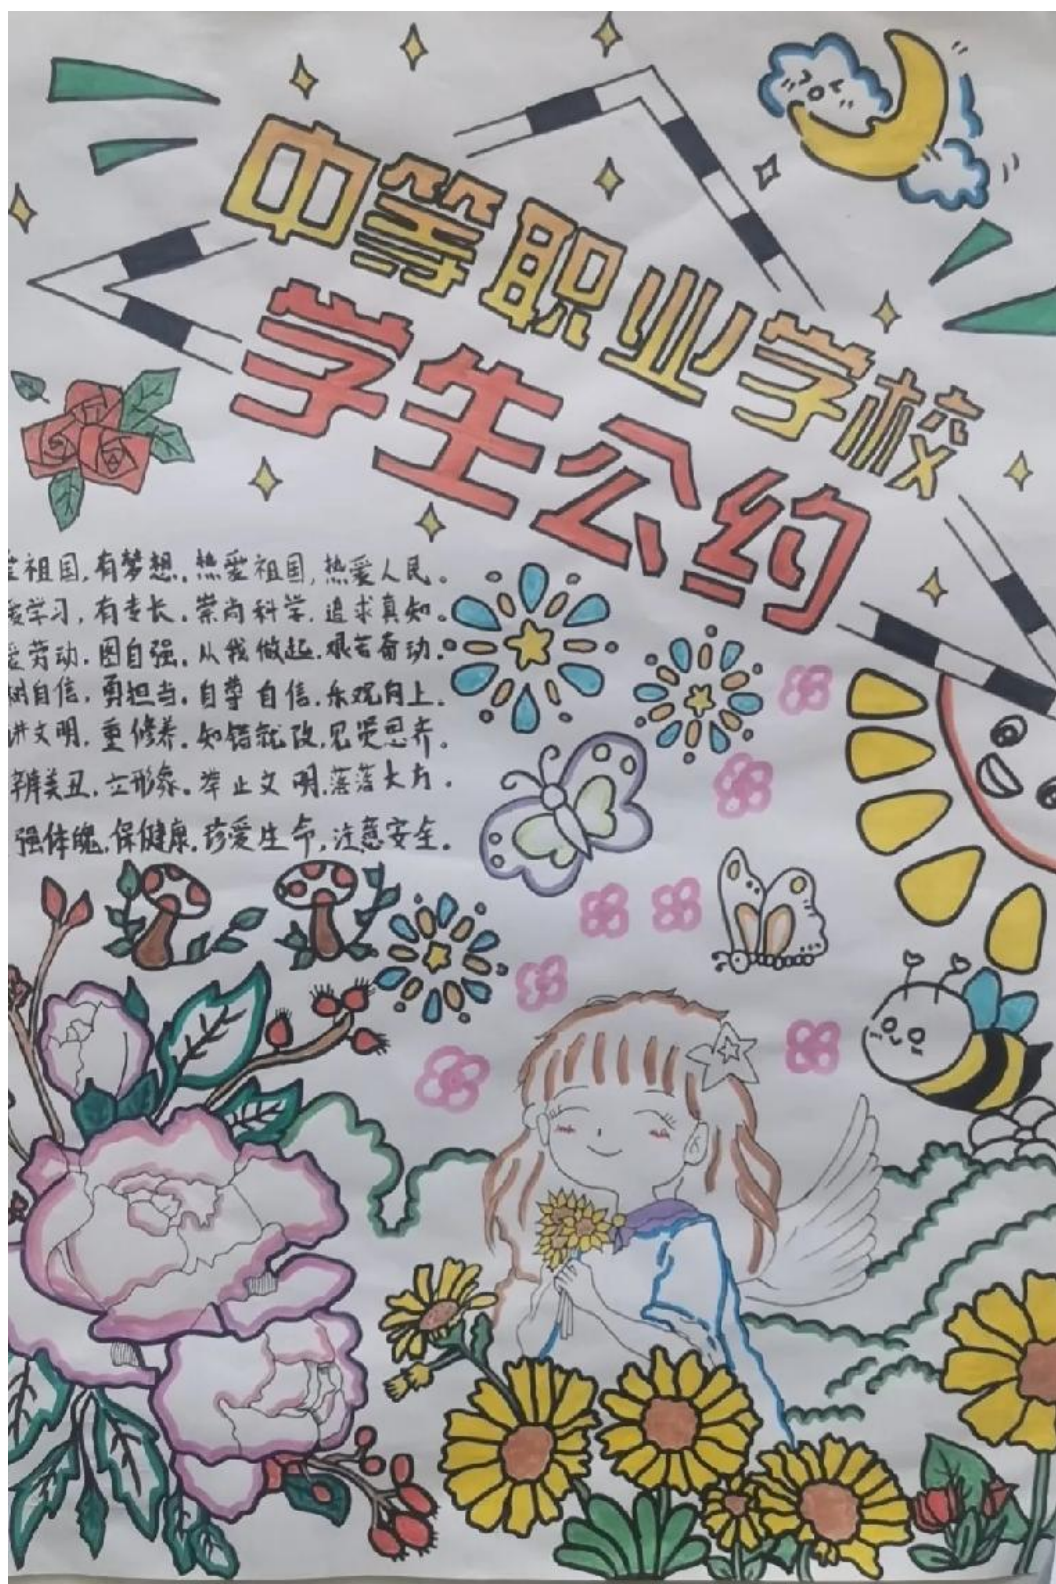 中等职业学校
学生公约
祖国,有梦想。热爱祖国,热爱人民。
爱学习,有专长。崇尚科学,追求真知。
爱劳动,图自强。从我做起,艰苦奋动。
树自信,勇担当。自尊自信,乐观向上。
讲文明,重修养。知错就改,见贤思齐。
辨美丑,立形象。举止文明,落落大方。
强体魄,保健康,珍爱生命,注意安全。